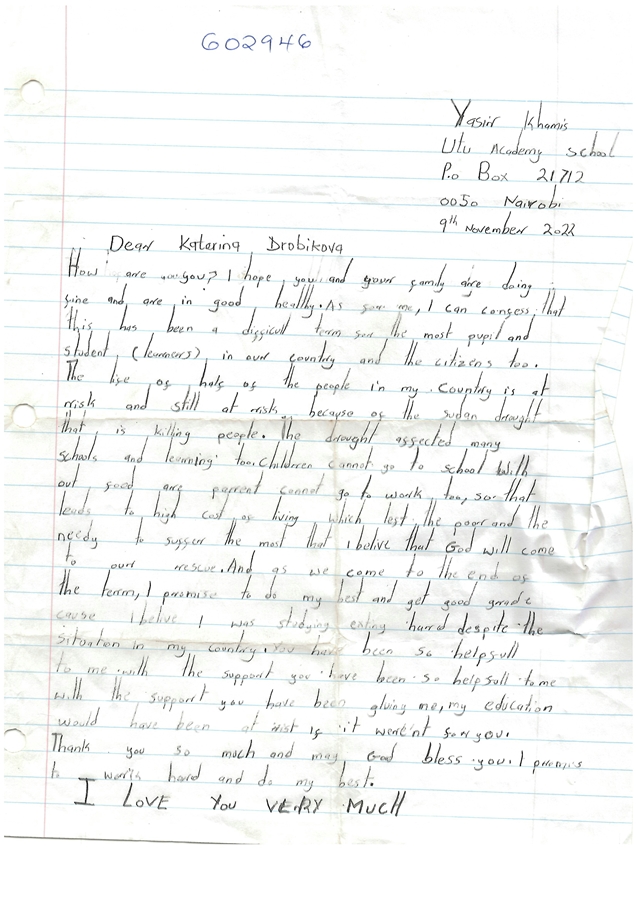 602946
Yasir Khamis
Utu Academy School
P.o Box 21712
0050 Nairobi
9th November 2022
Dear Katarina Drobikova
How are you? I hope you and your family are doing
fine and are in good healthy. As for me, I can confess that
this has been a difficult term for the most pupil and
student, (learners), in our country and the citizens too.
The life of half of the people in my country is at
risk and still at risk, because of the sudan drought
that is killing people. The drought affected many
schools and learning too. Children cannot go to school with
out food are parent cannot go to work, too, so that
leads to high cost of living which left the poor and the
needy to suffer the most that I belive that God will come
to our rescue. And as we come to the end of
the term, I promise to do my best and get good grade
cause I belive I was studying hard despite the
situation in my country. You have been so helpfull
to me with the support you have been so helpfull to me
with the support you have been giving me, my education
would have been at rist if it weren't for you.
Thank you so much and may God bless you. I promis
to work hard and do my best.
I LOVE YOU VERY MUCH